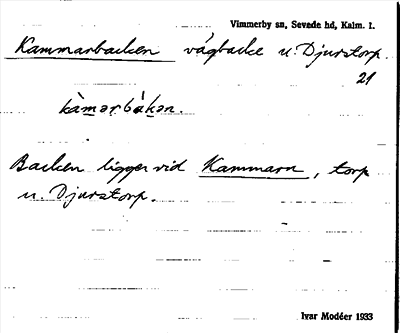 Vimmerby sn, Sevede hd, Kalm. l.
Kammarbacken vägbacke u. Djurstorp.
21
kàmәrbákәn.
Backen ligger vid Kammarn, torp
u. Djurstorp.
Ivar Modéer 1933